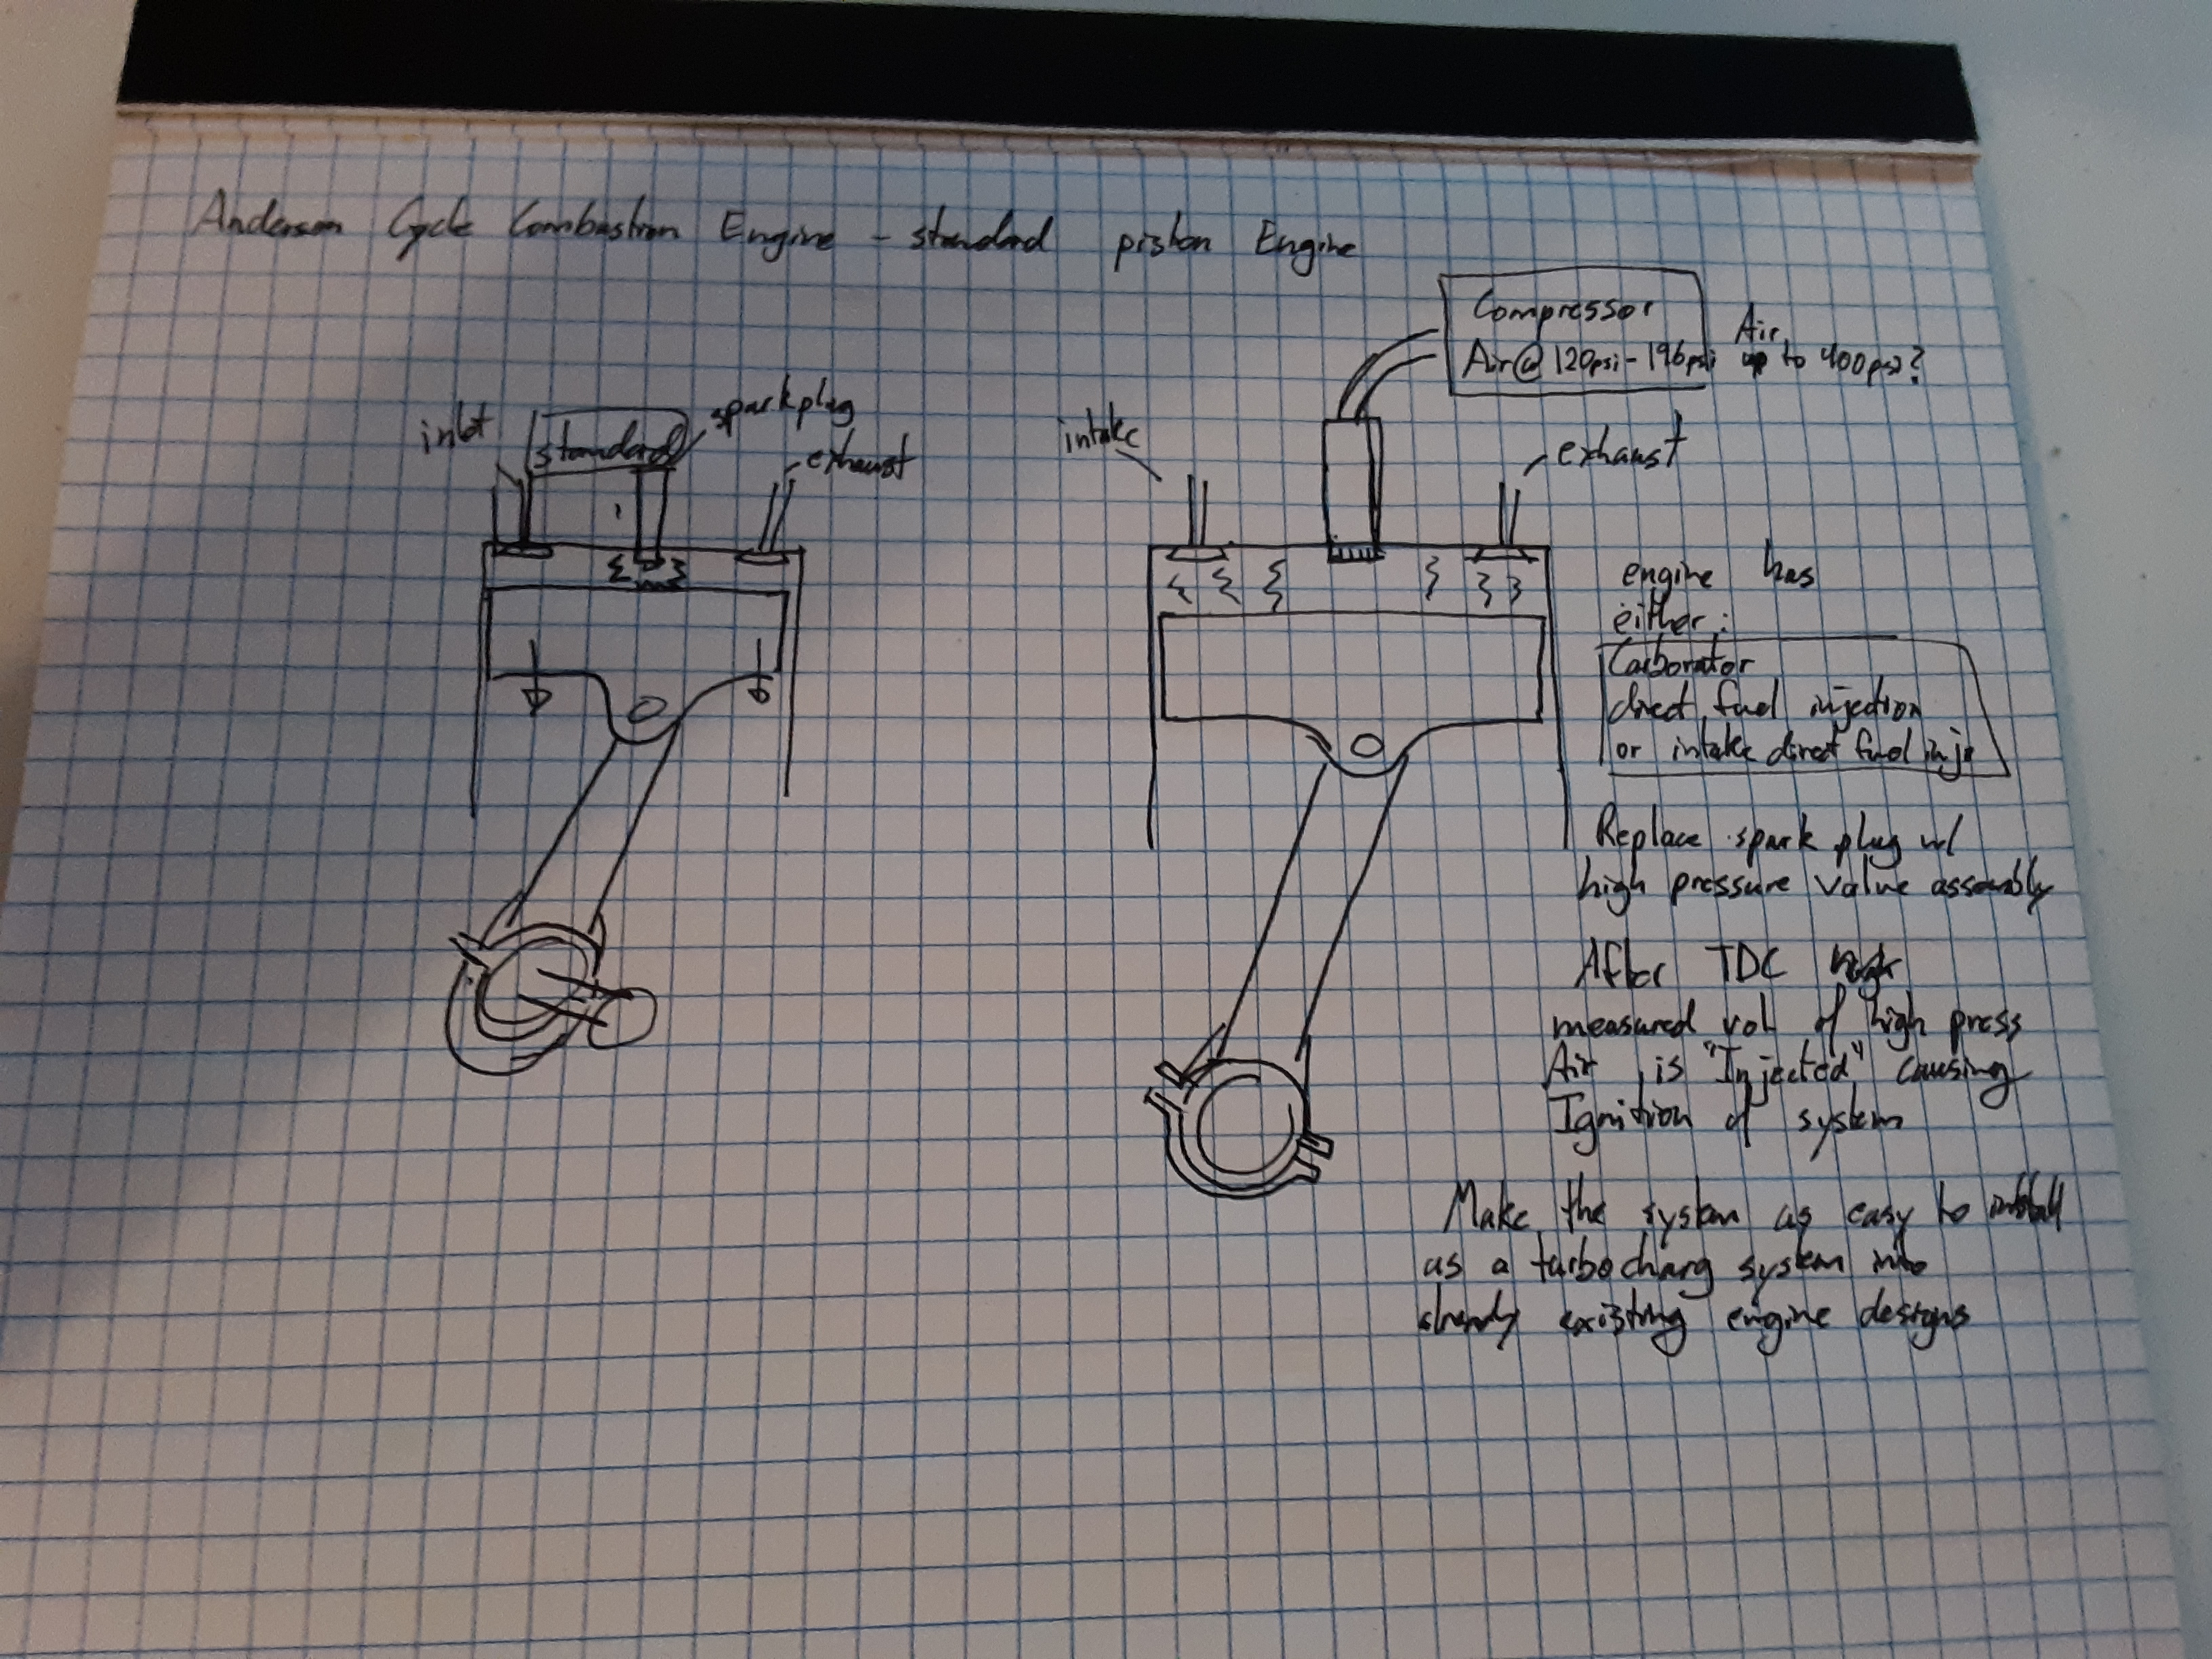 Anderson Cycle Combustion Engine - standard piston Engine
Compressor
Air@120psi-196psi
Air
up to 400psi?
inlet
standard
sparkplug
exhaust
intake
exhaust
engine has
either:
Carborator
direct fuel injection
or intake direct fuel inj
Replace spark plug w/
high pressure valve assembly
After TDC
measured vol of high press
Air is "Injected" causing
Ignition of system
Make the system as easy to install
as a turbocharg system into
already existing engine designs